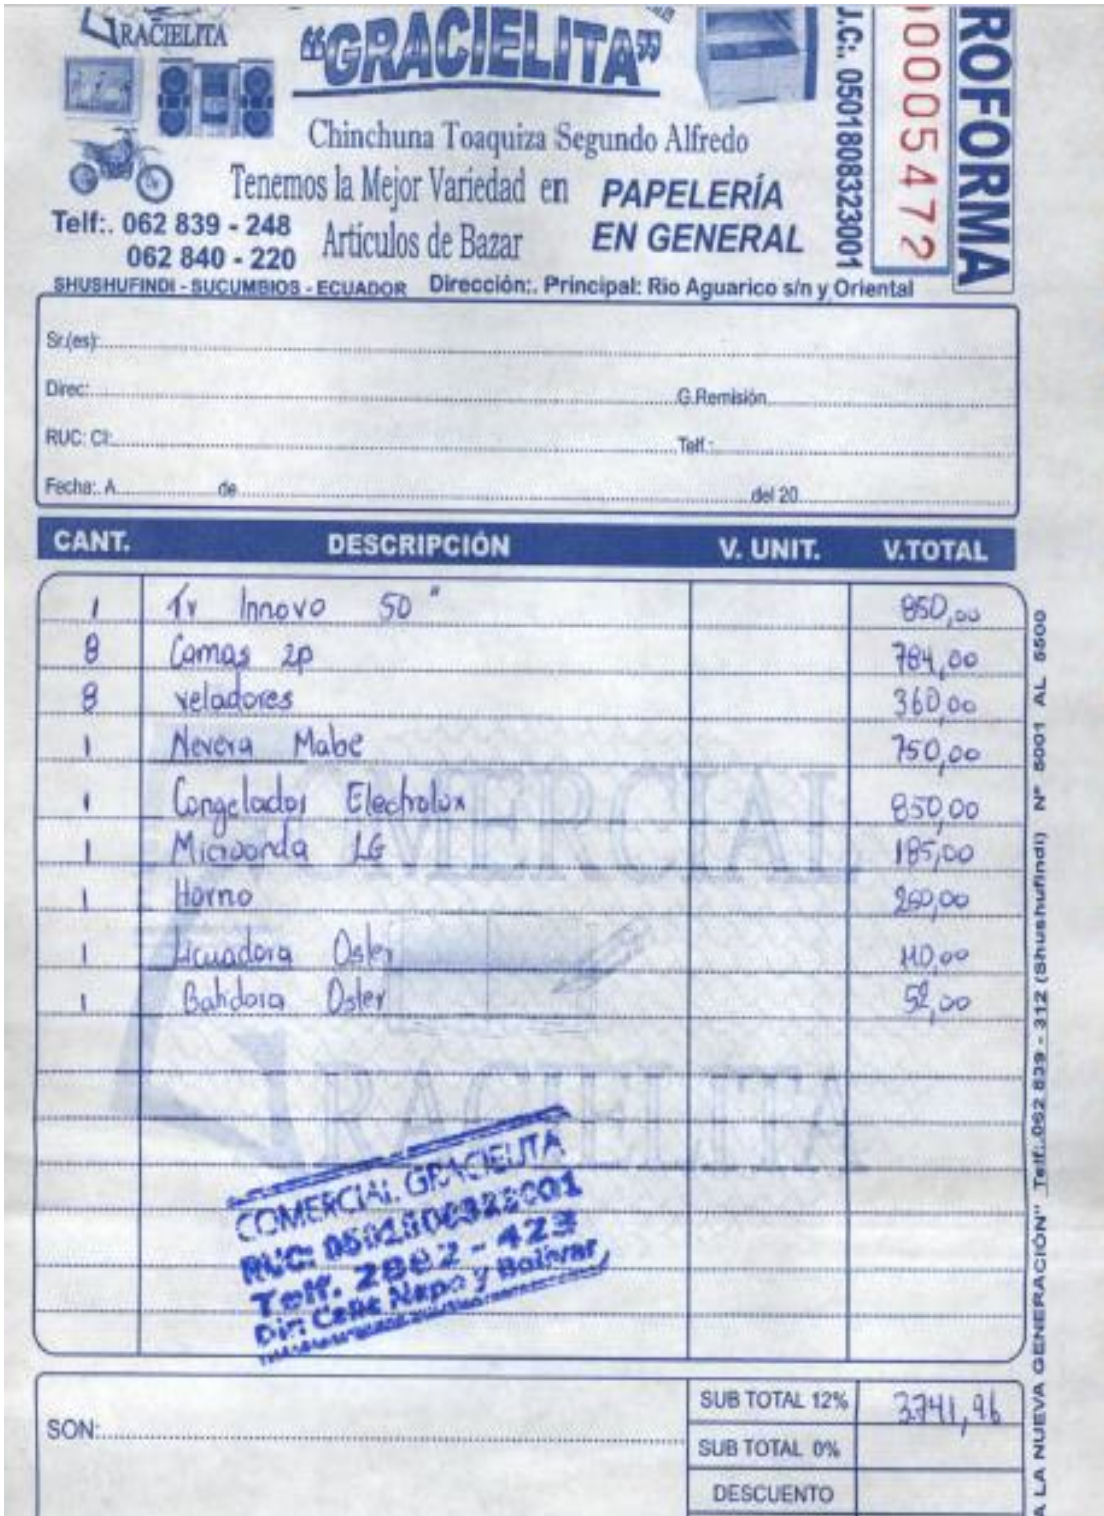 GRACIELITA
"GRACIELITA"
Chinchuna Toaquiza Segundo Alfredo
Tenemos la Mejor Variedad en
Artículos de Bazar
PAPELERÍA
EN GENERAL
Telf:. 062 839 - 248
062 840 - 220
SHUSHUFINDI - SUCUMBIOS - ECUADOR Dirección:. Principal: Rio Aguarico s/n y Oriental
U.C:. 0501808323001
0005472
ROFORMA
Sr.(es):
Direc: G.Remisión
RUC: CI: Telf.:
Fecha:. A de del 20
CANT. DESCRIPCIÓN V. UNIT. V.TOTAL
1 Tv Innovo 50" 850,00
8 Camas 2p 784,00
8 veladores 360,00
1 Nevera Mabe 750,00
1 Congelador Electrolux 850,00
1 Microonda LG 185,00
1 Horno 250,00
1 Licuadora Oster 110,00
1 Batidora Oster 52,00
COMERCIAL
GRACIELITA
COMERCIAL GRACIELITA
RUC: 0501808323001
Telf. 2882 - 423
Dir: Calle Napo y Bolívar
SON:
SUB TOTAL 12% 3741,96
SUB TOTAL 0%
DESCUENTO
A LA NUEVA GENERACIÓN" Telf:.062 839 - 312 (Shushufindi) N° 5001 AL 5500